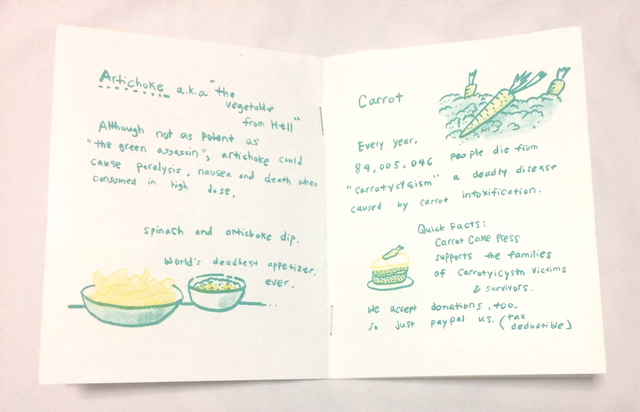 Artichoke a.k.a "the
vegetable
from Hell"
Although not as potent as
"the green assassin", artichoke could
cause paralysis, nausea and death when
consumed in high dose.
spinash and artichoke dip.
World's deadliest appetizer.
ever.
Carrot
Every year,
84,005,046 people die from
"carrotycysism" a deadly disease
caused by carrot intoxification.
Quick Facts:
Carrot Cake Press
supports the families
of Carrotyicysm victims
& survivors.
We accept donations, too.
so just paypal us. (tax
deductible)